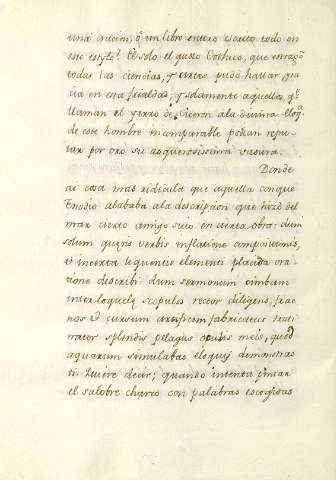 una oracion, ò un libro entero escrito todo en
este estylo? El solo el gusto Gothico, que estragò
todas las ciencias, y artes pudo hallar gra
cia en esta frialdad, y solamente aquellos q.e
llaman el yerro de Ciceron ala divina eloq.a
de ese hombre incomparable podian repu
tar por oro su asquerosissima vasura.
Donde
ai cosa mas ridicula que aquella con que
Enodio alababa ala descripcion que hizo del
mar cierto amigo suyo en cierta obra: dum
solum quæris verbis inflatione compositionis,
& incerta liquentis elementi placida ora
tione describis: dum sermonum cimbam
inter loquelæ scopulos rector diligens, frae
nos & cursum artificem fabricatus trutinator
splendis pelagus oculis meis, quod
aquarum simulabas eloquii demonstras
ti. Quiere decir; quando intenta pintar
el salobre charco con palabras escogidas